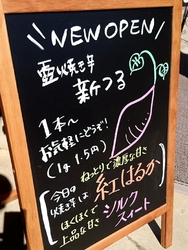 NEW OPEN
壺焼き芋
新つる
1本〜
お気軽にどうぞ
(1g 1.5円)
ねっとりで濃厚な甘さ
今日の
焼き芋は
紅はるか
ほくほくで
上品な甘さ
シルク
スイート